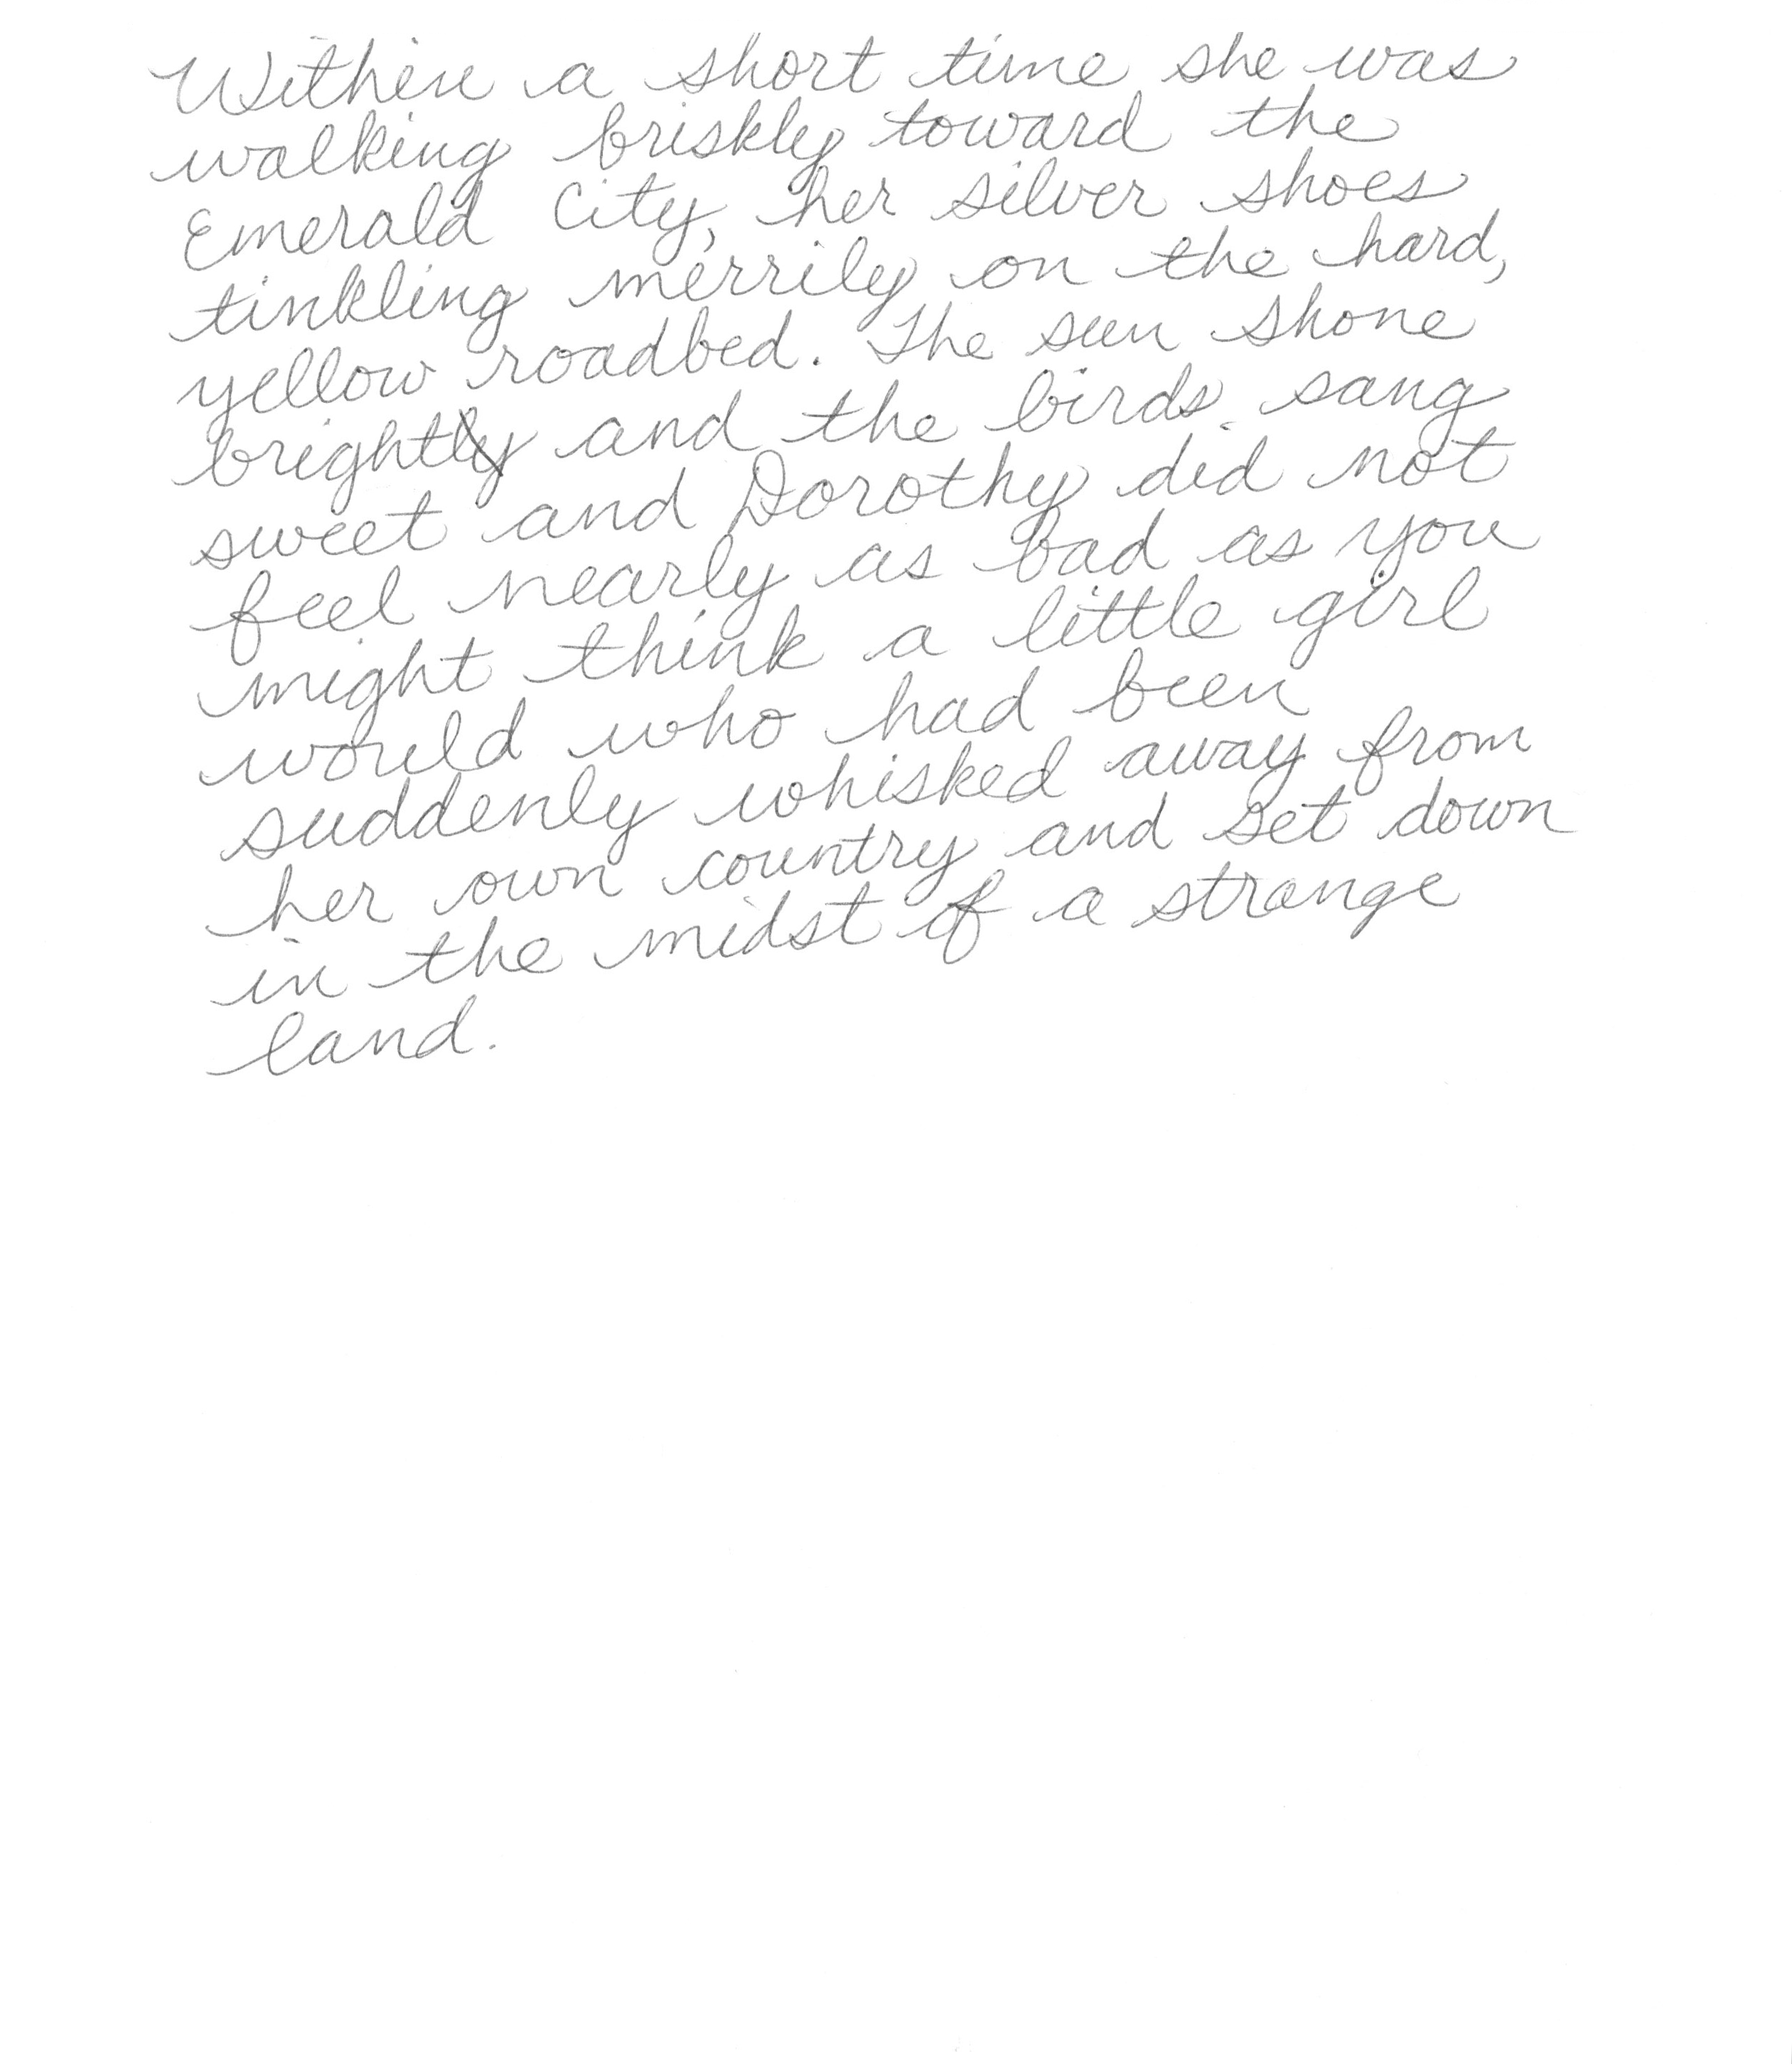 Within a short time she was
walking briskly toward the
Emerald City, her silver shoes
tinkling merrily on the hard,
yellow roadbed. The sun shone
brightly and the birds sang
sweet and Dorothy did not
feel nearly as bad as you
might think a little girl
would who had been
suddenly whisked away from
her own country and set down
in the midst of a strange
land.